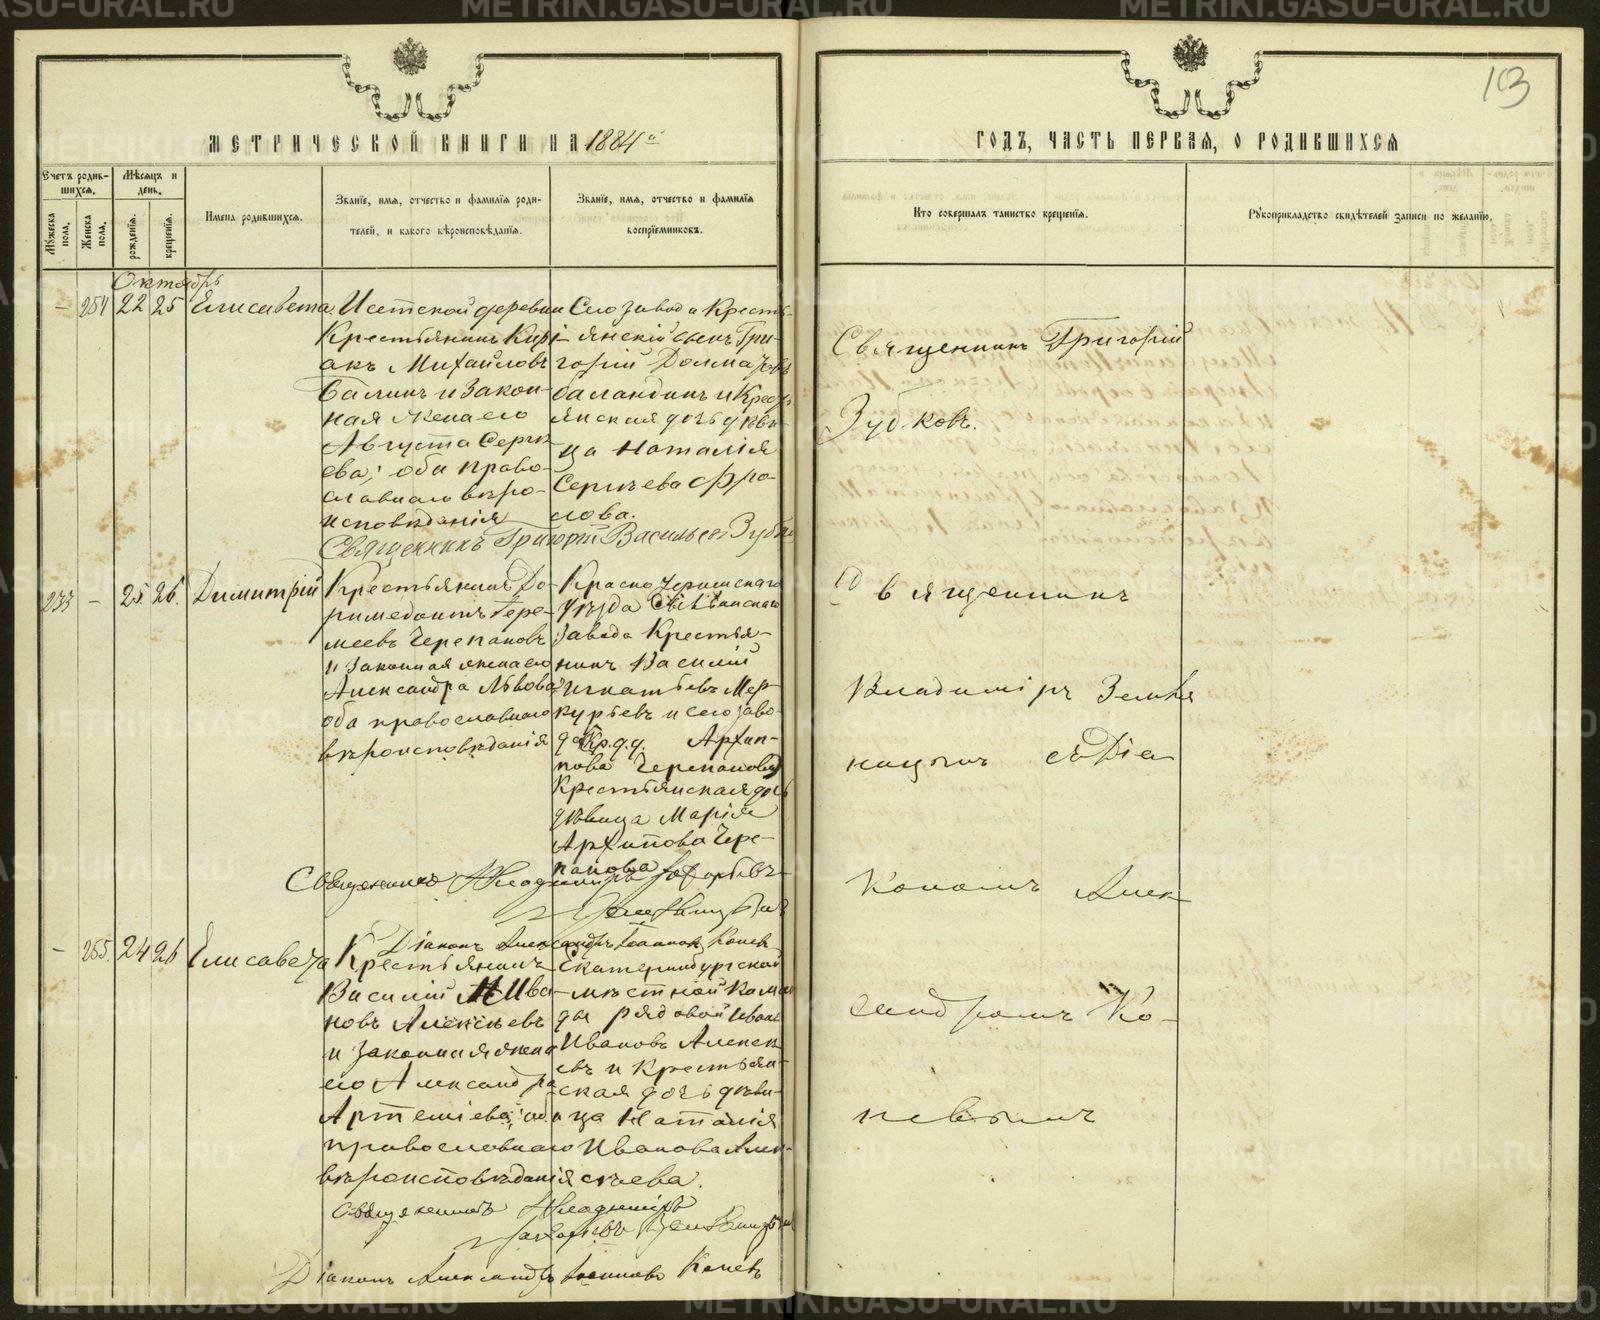 METRIKI.GASU-URAL.RU
103
МЕТРИЧЕСКОЙ КНИГИ НА 1884й
ГОДЪ, ЧАСТЬ ПЕРВАЯ, О РОДИВШИХСЯ
Счетъ родив-
шихся.
Мѣсяцъ и
день.
Мужеска
пола.
Женска
пола.
рожденія.
крещенія.
Имена родившихся.
Званіе, имя, отчество и фамилія роди-
телей, и какого вѣроисповѣданія.
Званіе, имя, отчество и фамилія
воспріемниковъ.
Кто совершалъ таинство крещенія.
Рукоприкладство свидѣтелей записи по желанію.
Октябрь
– 254 22 25 Елисавета.
Исетской деревни
Крестьянинъ Кирі-
акъ Михайловъ
и Закон-
ная жена его
Августа Серге-
ева; оба право-
славнаго вѣро-
исповѣданія
Сего завода Кресть-
янскій сынъ Гри-
горій
Баландинъ и Кресть-
янская дочь дѣви-
ца Наталія
Сергѣева Фро-
лова.
Священникъ Григорій
Зубковъ.
Священникъ Григорій Васильевъ Зубковъ
233 – 25 26. Димитрій
Крестьянинъ До-
римедонтъ Гере-
меевъ Черепановъ
и законная жена его
Александра Львова
оба православнаго
вѣроисповѣданія
Красноуфимскаго
Уѣзда
завода Крестья-
нинъ Василій
Игнатьевъ Мер-
курьевъ и сего заво-
да Кр. д. д. Архип-
пова Черепанова
Крестьянская дочь
дѣвица Марія
Архипова Чере-
панова
Священникъ
Владиміръ Земля-
ницынъ съ Діа-
кономъ Алек-
сандромъ Ко-
невымъ
Священникъ Владиміръ Захарьевъ
Земляницынъ
Діаконъ Александръ Іоанновъ Коневъ
– 255. 24 26 Елисавета
Крестьянинъ
Василій Ива-
новъ Алексѣевъ
и законная жена
его Александра
Артеміева; оба
православнаго
вѣроисповѣданія
Екатеринбургской
мѣстной коман-
ды рядовой Иванъ
Ивановъ Алексѣ-
евъ и Крестьян-
ская дочь дѣви-
ца Наталія
Иванова Алек-
сѣева.
Священникъ Владиміръ
Захарьевъ Земляницынъ
Діаконъ Александръ Іоанновъ Коневъ